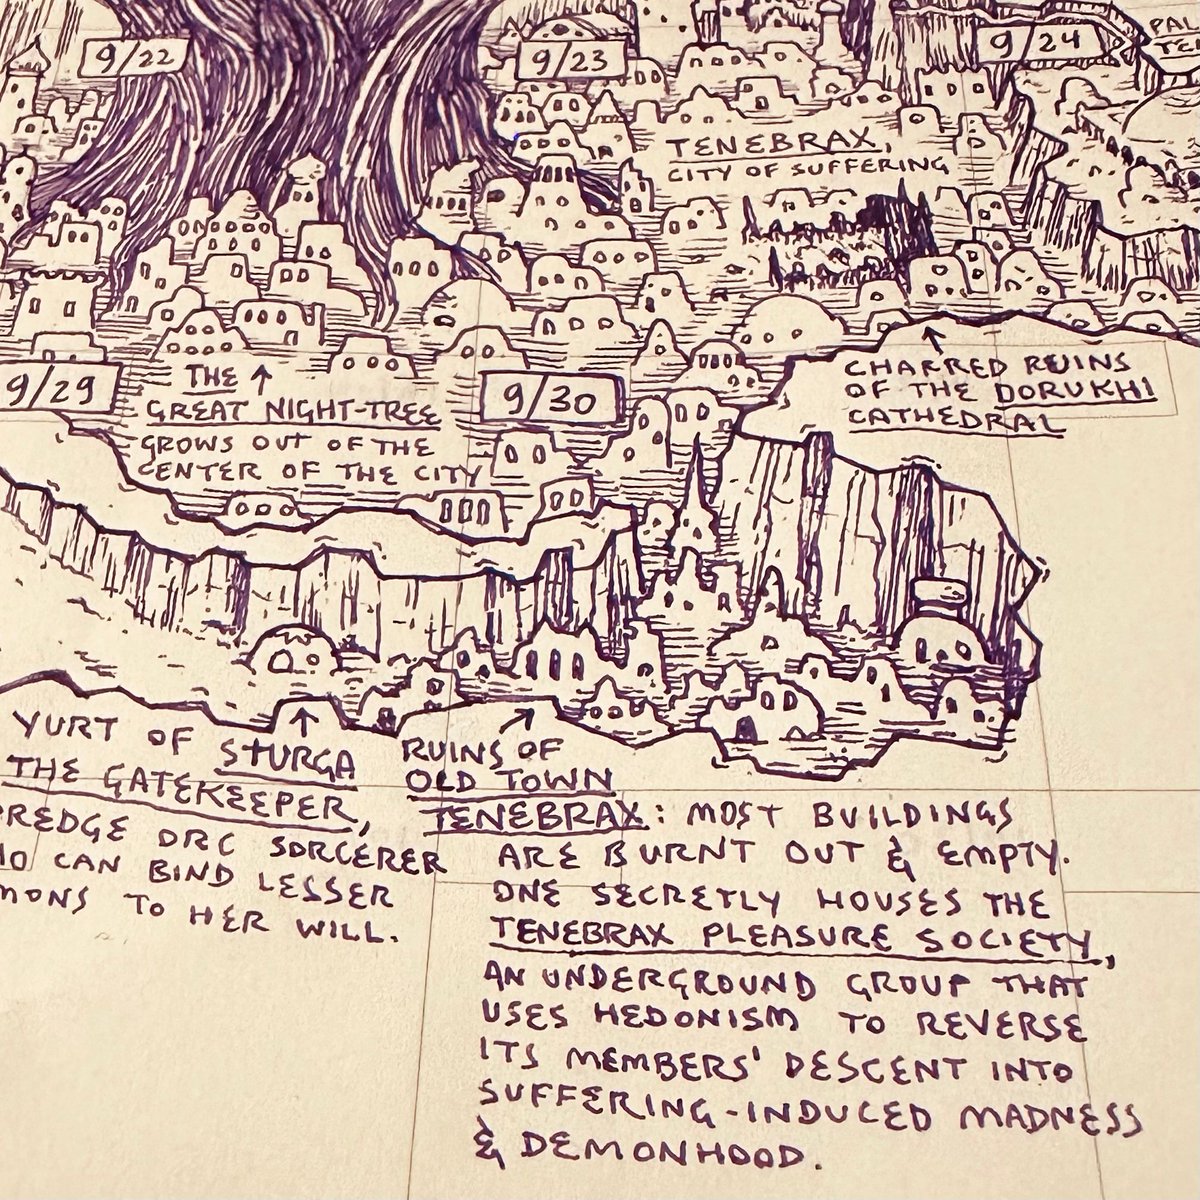 9/22
9/23
9/24
PAL
TE
TENEBRAX,
CITY OF SUFFERING
CHARRED RUINS
OF THE DORUKHI
CATHEDRAL
9/29
THE
GREAT NIGHT-TREE
GROWS OUT OF THE
CENTER OF THE CITY
9/30
YURT OF STURGA
THE GATEKEEPER,
DREDGE ORC SORCERER
HO CAN BIND LESSER
MONS TO HER WILL.
RUINS OF
OLD TOWN
TENEBRAX: MOST BUILDINGS
ARE BURNT OUT & EMPTY.
ONE SECRETLY HOUSES THE
TENEBRAX PLEASURE SOCIETY,
AN UNDERGROUND GROUP THAT
USES HEDONISM TO REVERSE
ITS MEMBERS' DESCENT INTO
SUFFERING-INDUCED MADNESS
& DEMONHOOD.